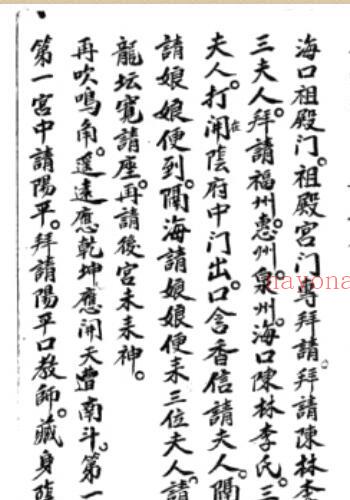 海口祖殿门。祖殿宫门專拜請。拜請陳林李
三夫人。拜請福州惠州泉州。海口陳林李氏。三
夫人。打開在陰府中门出。口含香信請夫人。闗
請娘娘便到。闗海請娘娘便来三位夫人。請
龍坛寬請座。再請後宫未来神。
再吹鳴角。遥遠應乾坤應開天曹南斗。第一
第一宫中請陽平。拜請陽平口教師。藏身蔭
nayona